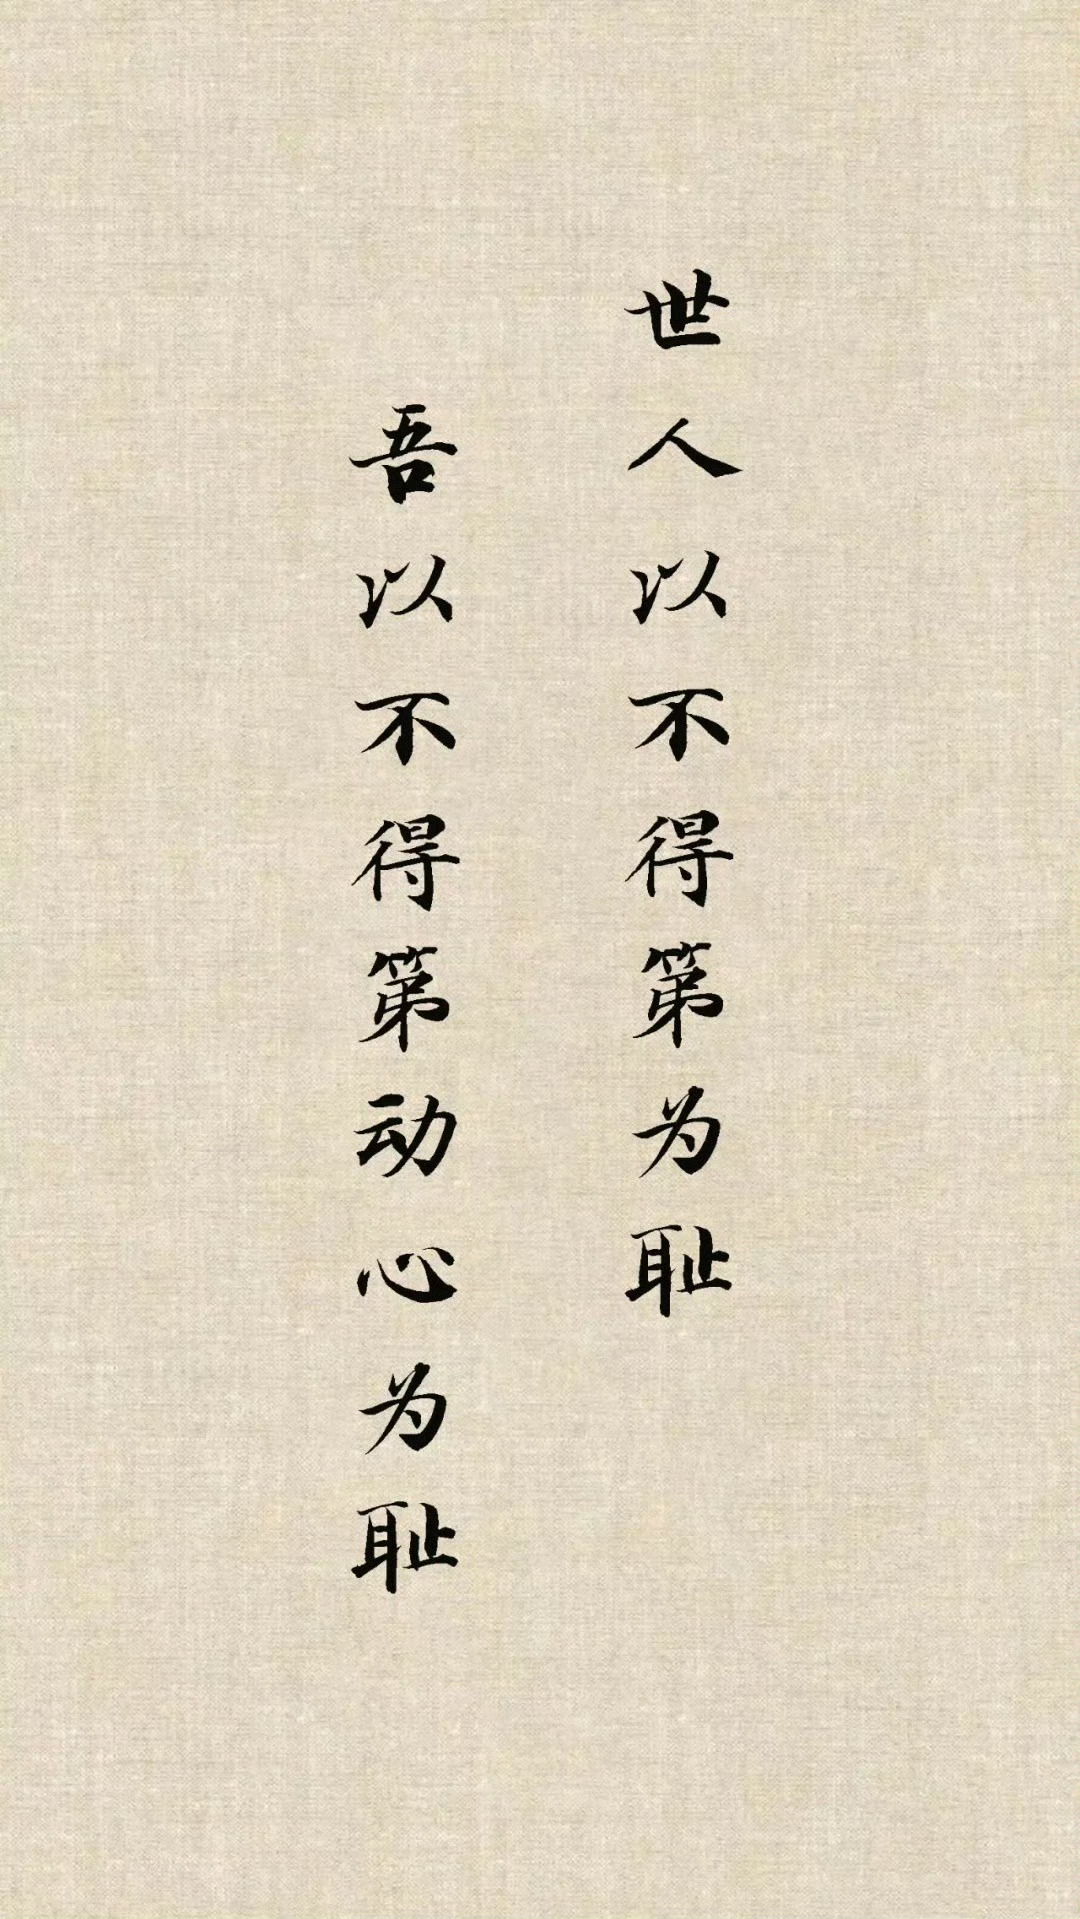 世人以不得第为耻
吾以不得第动心为耻